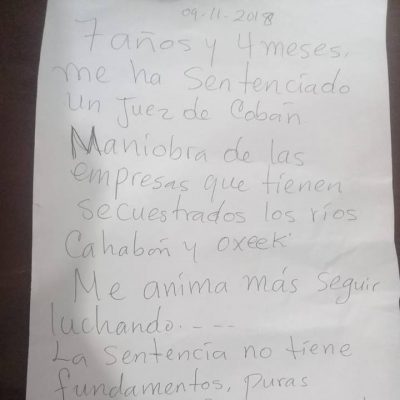 09-11-2018
7 años y 4 meses.
me ha sentenciado
un Juez de Cobán
Maniobra de las
empresas que tienen
secuestrados los ríos
Cahabón y oxeek'
Me anima más seguir
luchando. - - -
La sentencia no tiene
fundamentos, puras